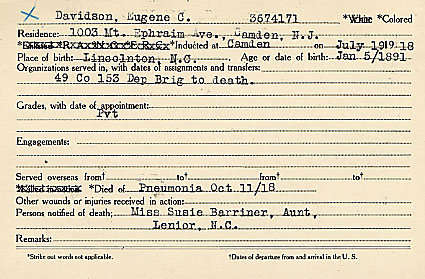 Davidson, Eugene C. 3674171 *White *Colored
Residence: 1003 Mt. Ephraim Ave., Camden, N.J.
*Inducted at Camden on July 19 19 18
Place of birth: Lincolnton, N.C. Age or date of birth: Jan 5/1891
Organizations served in, with dates of assignments and transfers:
49 Co 153 Dep Brig to death.
Grades, with date of appointment:
Pvt
Engagements:
Served overseas from† to† from† to†
*Killed in action *Died of Pneumonia Oct 11/18
Other wounds or injuries received in action:
Persons notified of death: Miss Susie Barriner, Aunt,
Lenior, N.C.
Remarks:
*Strike out words not applicable. †Dates of departure from and arrival in the U. S.